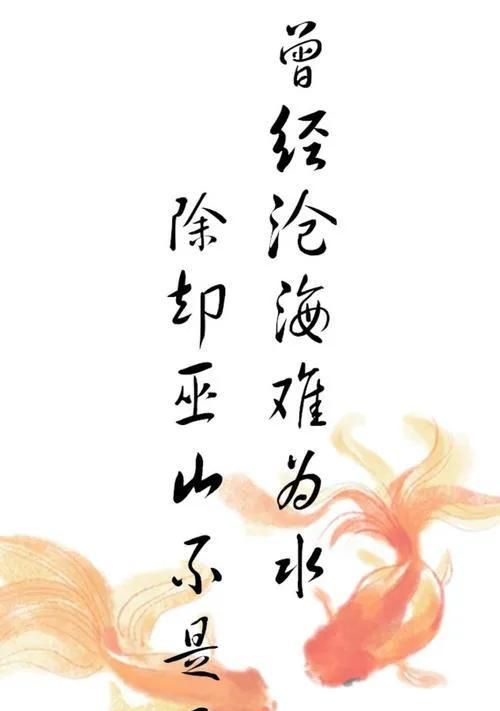 曾经沧海难为水
除却巫山不是